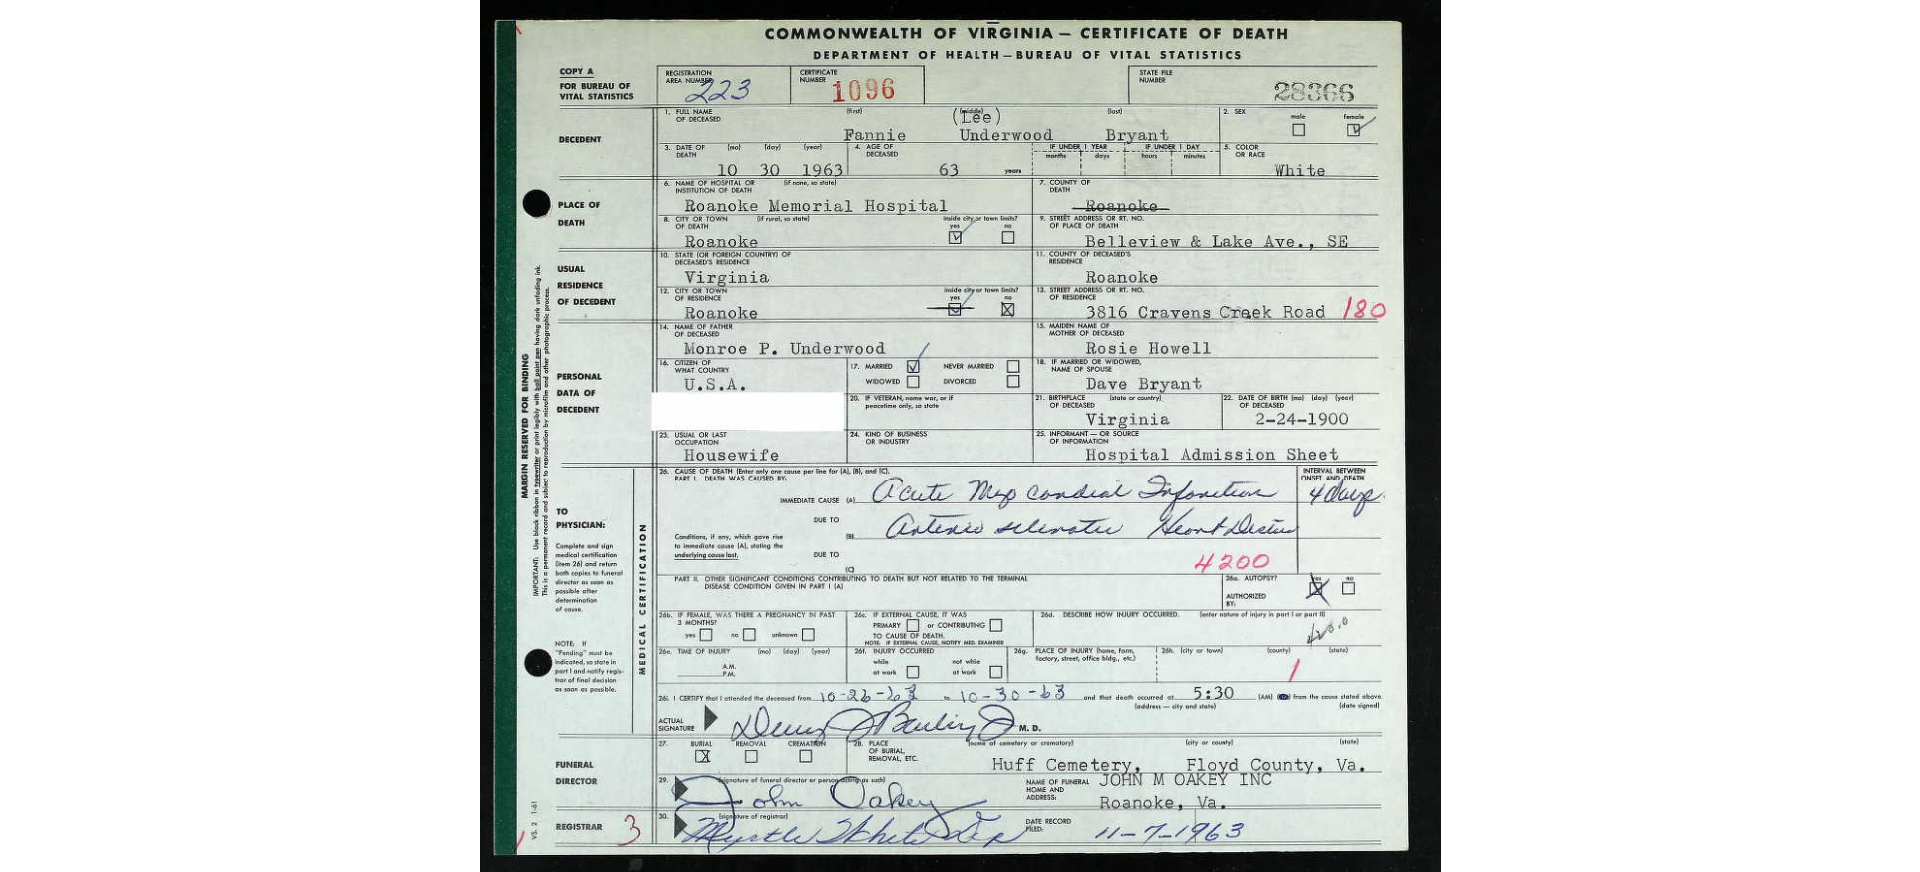 COMMONWEALTH OF VIRGINIA — CERTIFICATE OF DEATH
DEPARTMENT OF HEALTH — BUREAU OF VITAL STATISTICS
COPY A
FOR BUREAU OF
VITAL STATISTICS
REGISTRATION
AREA NUMBER
223
CERTIFICATE
NUMBER
1096
STATE FILE
NUMBER
28366
DECEDENT
1. FULL NAME
OF DECEASED
(first) (middle) (last)
(Lee)
Fannie Underwood Bryant
2. SEX
male female
3. DATE OF
DEATH
(mo) (day) (year)
10 30 1963
4. AGE OF
DECEASED
63 years
IF UNDER 1 YEAR IF UNDER 1 DAY
months days hours minutes
5. COLOR
OR RACE
White
PLACE OF
DEATH
6. NAME OF HOSPITAL OR (if none, so state)
INSTITUTION OF DEATH
Roanoke Memorial Hospital
7. COUNTY OF
DEATH
Roanoke
8. CITY OR TOWN (if rural, so state)
OF DEATH
inside city or town limits?
yes no
Roanoke
9. STREET ADDRESS OR RT. NO.
OF PLACE OF DEATH
Belleview & Lake Ave., SE
USUAL
RESIDENCE
OF DECEDENT
10. STATE (OR FOREIGN COUNTRY) OF
DECEASED'S RESIDENCE
Virginia
11. COUNTY OF DECEASED'S
RESIDENCE
Roanoke
12. CITY OR TOWN
OF RESIDENCE
inside city or town limits?
yes no
Roanoke
13. STREET ADDRESS OR RT. NO.
OF RESIDENCE
3816 Cravens Creek Road 180
PERSONAL
DATA OF
DECEDENT
14. NAME OF FATHER
OF DECEASED
Monroe P. Underwood
15. MAIDEN NAME OF
MOTHER OF DECEASED
Rosie Howell
16. CITIZEN OF
WHAT COUNTRY
U.S.A.
17. MARRIED NEVER MARRIED
WIDOWED DIVORCED
18. IF MARRIED OR WIDOWED,
NAME OF SPOUSE
Dave Bryant
20. IF VETERAN, name war, or if
peacetime only, so state
21. BIRTHPLACE (state or country)
OF DECEASED
Virginia
22. DATE OF BIRTH (mo) (day) (year)
OF DECEASED
2-24-1900
23. USUAL OR LAST
OCCUPATION
Housewife
24. KIND OF BUSINESS
OR INDUSTRY
25. INFORMANT — OR SOURCE
OF INFORMATION
Hospital Admission Sheet
MARGIN RESERVED FOR BINDING
IMPORTANT: Use black ribbon in typewriter or print legibly with ball point pen having dark unfading ink.
This is a permanent record and subject to reproduction by microfilm and other photographic process.
VS. 2 1-61
TO
PHYSICIAN:
Complete and sign
medical certification
(Item 26) and return
both copies to funeral
director as soon as
possible after
determination
of cause.
NOTE: If
"Pending" must be
indicated, so state in
part I and notify regis-
trar of final decision
as soon as possible.
MEDICAL CERTIFICATION
26. CAUSE OF DEATH (Enter only one cause per line for (A), (B), and (C).
PART I. DEATH WAS CAUSED BY:
INTERVAL BETWEEN
ONSET AND DEATH
IMMEDIATE CAUSE (A) Acute Myocardial Infarction 4 Days
DUE TO
(B) Arterio sclerotic Heart Disease
Conditions, if any, which gave rise
to immediate cause (A), stating the
underlying cause last.
DUE TO
(C)
4200
PART II. OTHER SIGNIFICANT CONDITIONS CONTRIBUTING TO DEATH BUT NOT RELATED TO THE TERMINAL
DISEASE CONDITION GIVEN IN PART I (A)
26a. AUTOPSY?
yes no
AUTHORIZED
BY:
26b. IF FEMALE, WAS THERE A PREGNANCY IN PAST
3 MONTHS?
yes no unknown
26c. IF EXTERNAL CAUSE, IT WAS
PRIMARY or CONTRIBUTING
TO CAUSE OF DEATH.
NOTE: IF EXTERNAL CAUSE, NOTIFY MED. EXAMINER
26d. DESCRIBE HOW INJURY OCCURRED. (enter nature of injury in part I or part II)
420.0
26e. TIME OF INJURY (mo) (day) (year)
A.M.
P.M.
26f. INJURY OCCURRED
while not while
at work at work
26g. PLACE OF INJURY (home, farm,
factory, street, office bldg., etc.)
26h. (city or town) (county) (state)
1
26i. I CERTIFY that I attended the deceased from 10-26-63 to 10-30-63 and that death occurred at 5:30 (AM) from the cause stated above.
(address — city and state) (date signed)
ACTUAL
SIGNATURE
M. D.
FUNERAL
DIRECTOR
27. BURIAL REMOVAL CREMATION
28. PLACE
OF BURIAL,
REMOVAL, ETC.
(name of cemetery or crematory) (city or county) (state)
Huff Cemetery, Floyd County, Va.
29. (signature of funeral director or person acting as such)
John Oakey
NAME OF FUNERAL
HOME AND
ADDRESS:
JOHN M OAKEY INC
Roanoke, Va.
REGISTRAR 3
30. (signature of registrar)
Myrtle White Dep
DATE RECORD
FILED:
11-7-1963